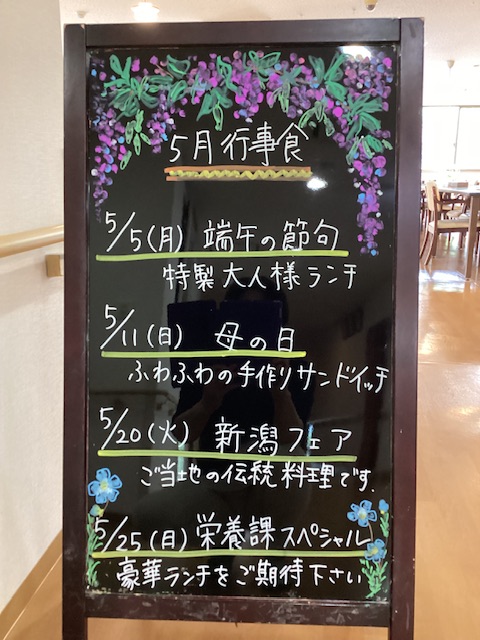 5月行事食
5/5(月) 端午の節句
特製大人様ランチ
5/11(日) 母の日
ふわふわの手作りサンドイッチ
5/20(火) 新潟フェア
ご当地の伝統料理です.
5/25(日) 栄養課スペシャル
豪華ランチをご期待下さい